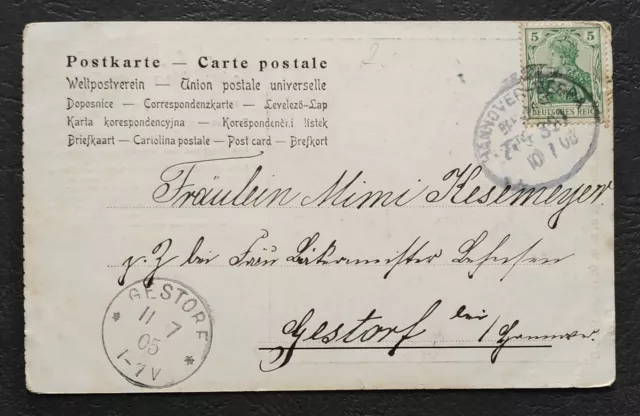 Postkarte — Carte postale
Weltpostverein — Union postale universelle
Dopisnice — Correspondenzkarte — Levelező-Lap
Karta korespondencyjna — Korespondenční listek
Briefkaart — Cartolina postale — Post card — Brefkort
5 5
DEUTSCHES REICH
HANNOVER
10 7 05
Fräulein Mimi Kesemeyer
p. Z bei Frau Bäckermeister
Gestorf bei
/Hannover.
GESTORF
* 11 7 *
05
1-7V